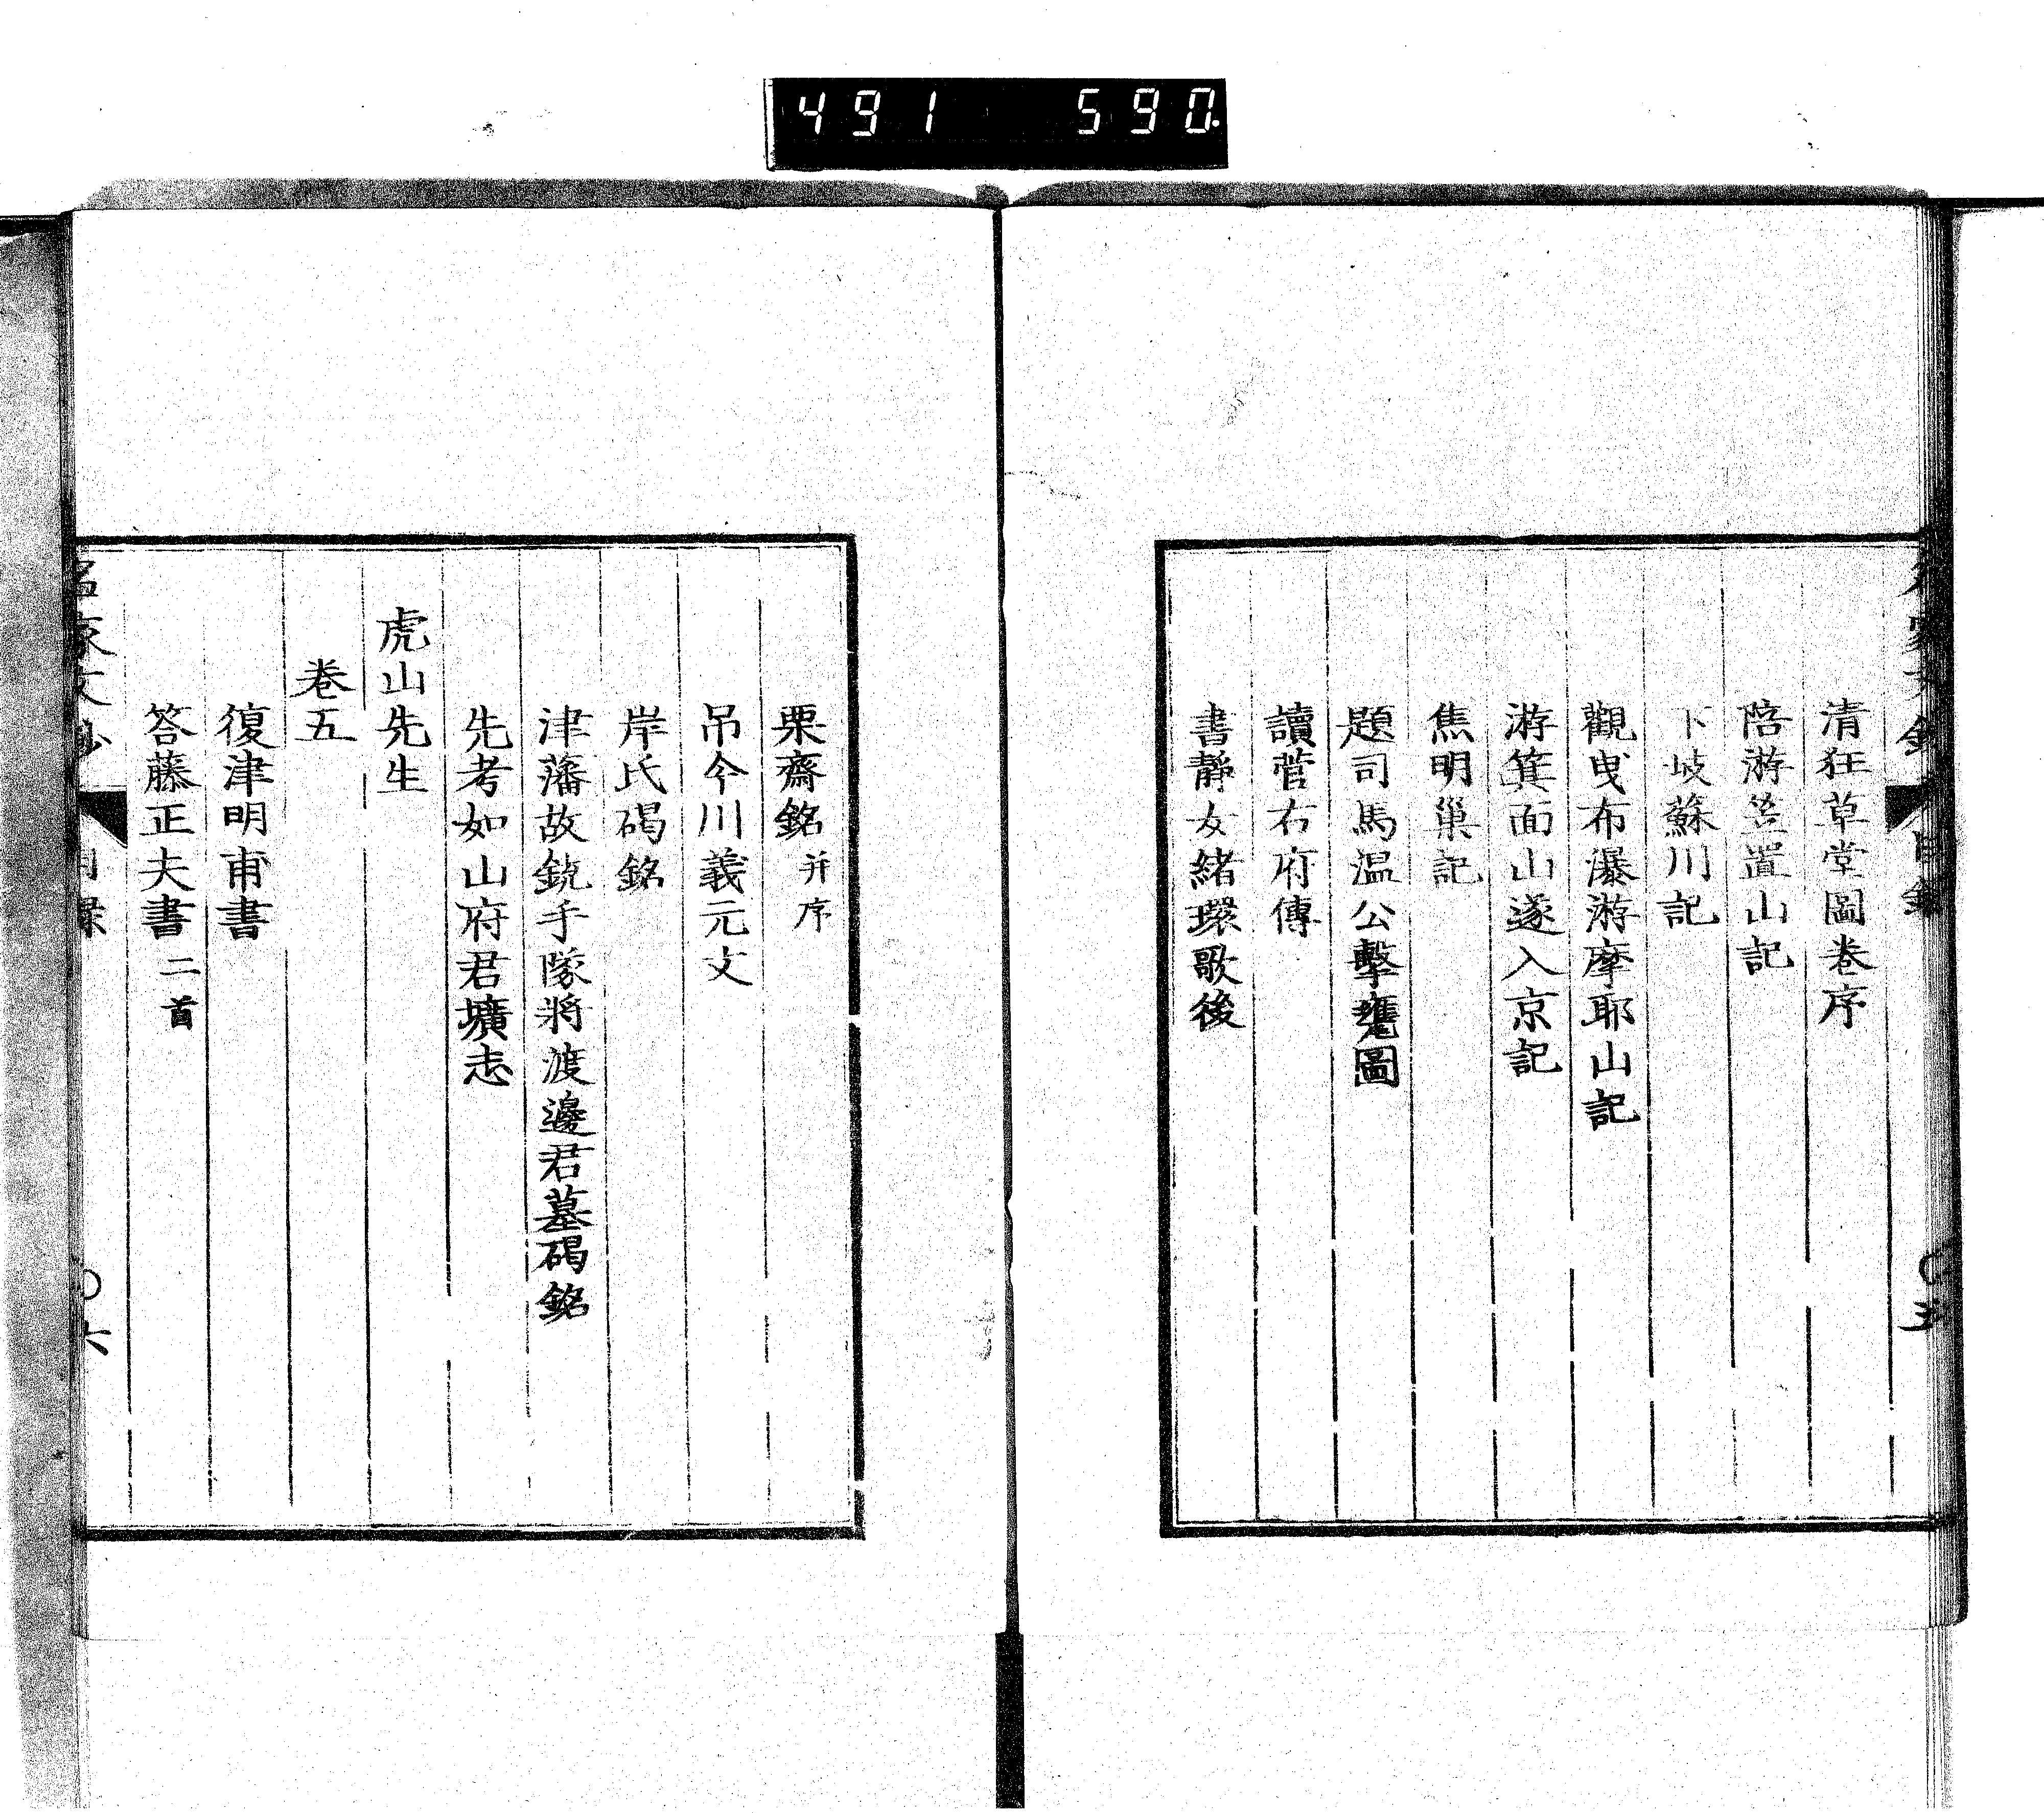 491 590
清狂草堂圖卷序
陪游笠置山記
下岐蘇川記
觀曳布瀑游摩耶山記
游箕面山遂入京記
焦明巢記
題司馬温公擊甕圖
讀菅右府傳
書靜女緒環歌後
栗齋銘 并序
吊今川義元文
岸氏碣銘
津藩故銃手隊將渡邊君墓碣銘
先考如山府君壙志
虎山先生
卷五
復津明甫書
答藤正夫書 二首